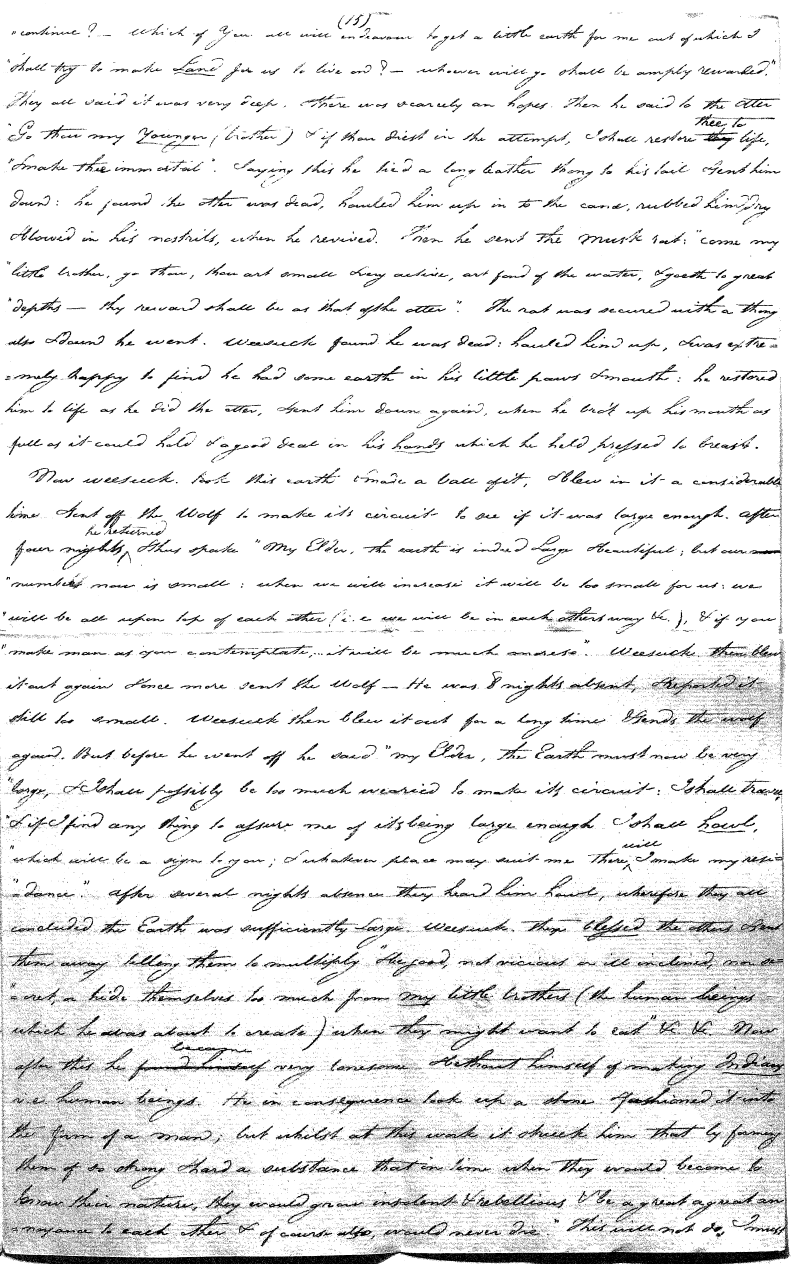 (15)
"continue? — which of You all will endeavour to get a little earth for me out of which I
"shall try to make Land for us to live on? — whoever will go shall be amply rewarded."
They all said it was very deep. there was scarcely an hopes. Then he said to the otter
"Go thou my Younger (brother) & if thou diest in the attempt, I shall restore thy thee, to life,
"& make thee immortal". Saying this he tied a long leather thong to his tail & sent him
down: he found the otter was dead, hauled him up in to the canoe, rubbed him dry
& blowed in his nostrils, when he revived. Then he sent the Musk rat: "come my
"little brother, go thou, thou art small & very active, art fond of the water, & goeth to great
"depths — thy reward shall be as that of the otter". The rat was secured with a thong
also & down he went. Weesuck found he was dead: hauled him up, & was extre=
=mely happy to find he had some earth in his little paws & mouth: he restored
him to life as he did the otter, & sent him down again, when he bro't up his mouth as
full as it could hold & a good deal in his hands which he held pressed to breast.
Now weesuck. took this earth & made a ball of it, & blew in it a considerable
time & sent off the Wolf to make its circuit to see if it was large enough. After
four nights he returned & thus spake "My Elder, the earth is indeed Large & beautiful; but our
"numbers now is small: when we will increase it will be too small for us: we
"will be all upon top of each other (i.e we will be in each others way &c.), & if you
"make man as you contemplate, it will be much moreso". Weesuck then blew
it out again & once more sent the Wolf — He was 8 nights absent, & reported it
still too small. Weesuck then blew it out for a long time & sends the wolf
again. But before he went off he said "my Elder, the Earth must now be very
"large, & I shall possibly be too much wearied to make its circuit: I shall travel,
"& if I find any thing to assure me of its being large enough I shall howl,
"which will be a sign to you; & whatever place may suit me there, will I make my resi=
"=dance." After several nights absence they heard him howl, wherefore they all
concluded the Earth was sufficiently large. Weesuck. then blessed the others & sent
them away telling them to multiply "& be good, not vicious or ill inclined, nor se=
"=cret, or hide themselves too much from my little brothers (the human beings
which he was about to create) when they might want to eat" &c &c. Now
after this he found himself became very lonesome & bethout himself of making Indians
i.e. human beings. He in consequence took up a stone & fashioned it into
the form of a man; but whilst at this work it struck him that by forming
them of so strong & hard a substance that in time when they would become to
know their nature, they would grow insolent & rebellious & be a great a great an
=noyance to each other & of course also, would never die. "This will not do, I must